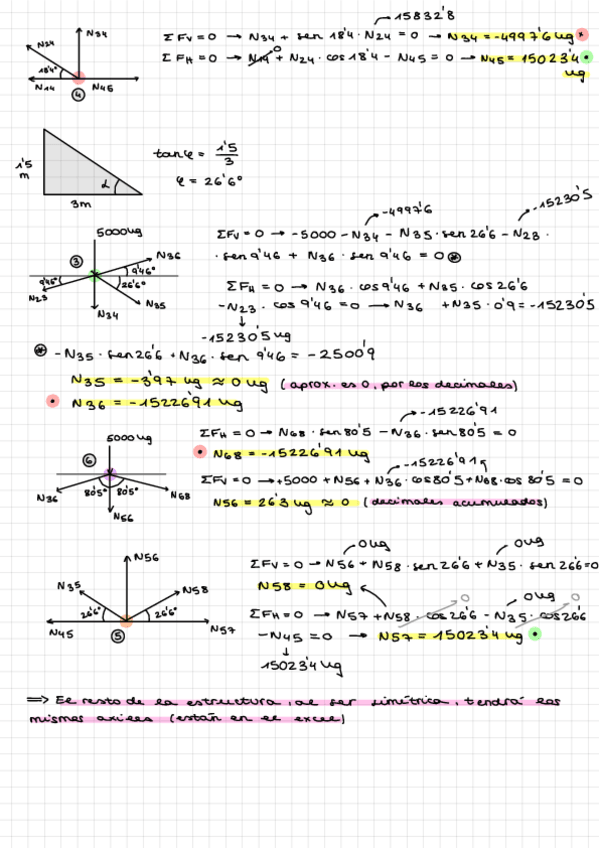 15832'8
N34
N24
18'4°
N14
N45
4
ΣFV=0 → N34 + sen 18'4 · N24 = 0 → N34 = -4997'6 kg *
ΣFH=0 → N14 + N24 · cos 18'4 - N45 = 0 → N45 = 15023'4
0
kg
1'5
m
3m
α
tan φ = 1'5 / 3
φ = 26'6°
-4997'6
-15230'5
5000 kg
3
N36
9'46°
26'6°
9'46°
N23
N35
N34
ΣFV=0 → -5000 - N34 - N35 · sen 26'6 - N23 ·
· sen 9'46 + N36 · sen 9'46 = 0 *
ΣFH=0 → N36 · cos 9'46 + N35 · cos 26'6
-N23 · cos 9'46 = 0 → N36 + N35 · 0'9 = -15230'5
-15230'5 kg
* -N35 · sen 26'6 + N36 · sen 9'46 = -2500'9
N35 = -3'97 kg ≈ 0 kg (aprox. es 0, por los decimales)
N36 = -15226'91 kg
-15226'91
5000 kg
6
N36
80'5°
80'5°
N68
N56
ΣFH=0 → N68 · sen 80'5 - N36 · sen 80'5 = 0
N68 = -15226'91 kg
-15226'91
ΣFV=0 → +5000 + N56 + N36 · cos 80'5 + N68 · cos 80'5 = 0
N56 = 26'3 kg ≈ 0 (decimales acumulados)
0 kg
0 kg
N56
N35
N58
26'6°
26'6°
N45
5
N57
ΣFV=0 → N56 + N58 · sen 26'6 + N35 · sen 26'6 = 0
N58 = 0 kg
0 kg
0
0
ΣFH=0 → N57 + N58 · cos 26'6 - N35 · cos 26'6
-N45 = 0 → N57 = 15023'4 kg
15023'4 kg
⇒ El resto de la estructura, al ser simétrica, tendrá los
mismos axiles (están en el excel)